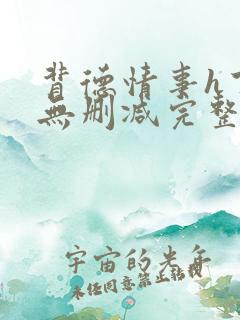 背德情事h
無删减完整
宇宙的光年
未经同意禁止转载